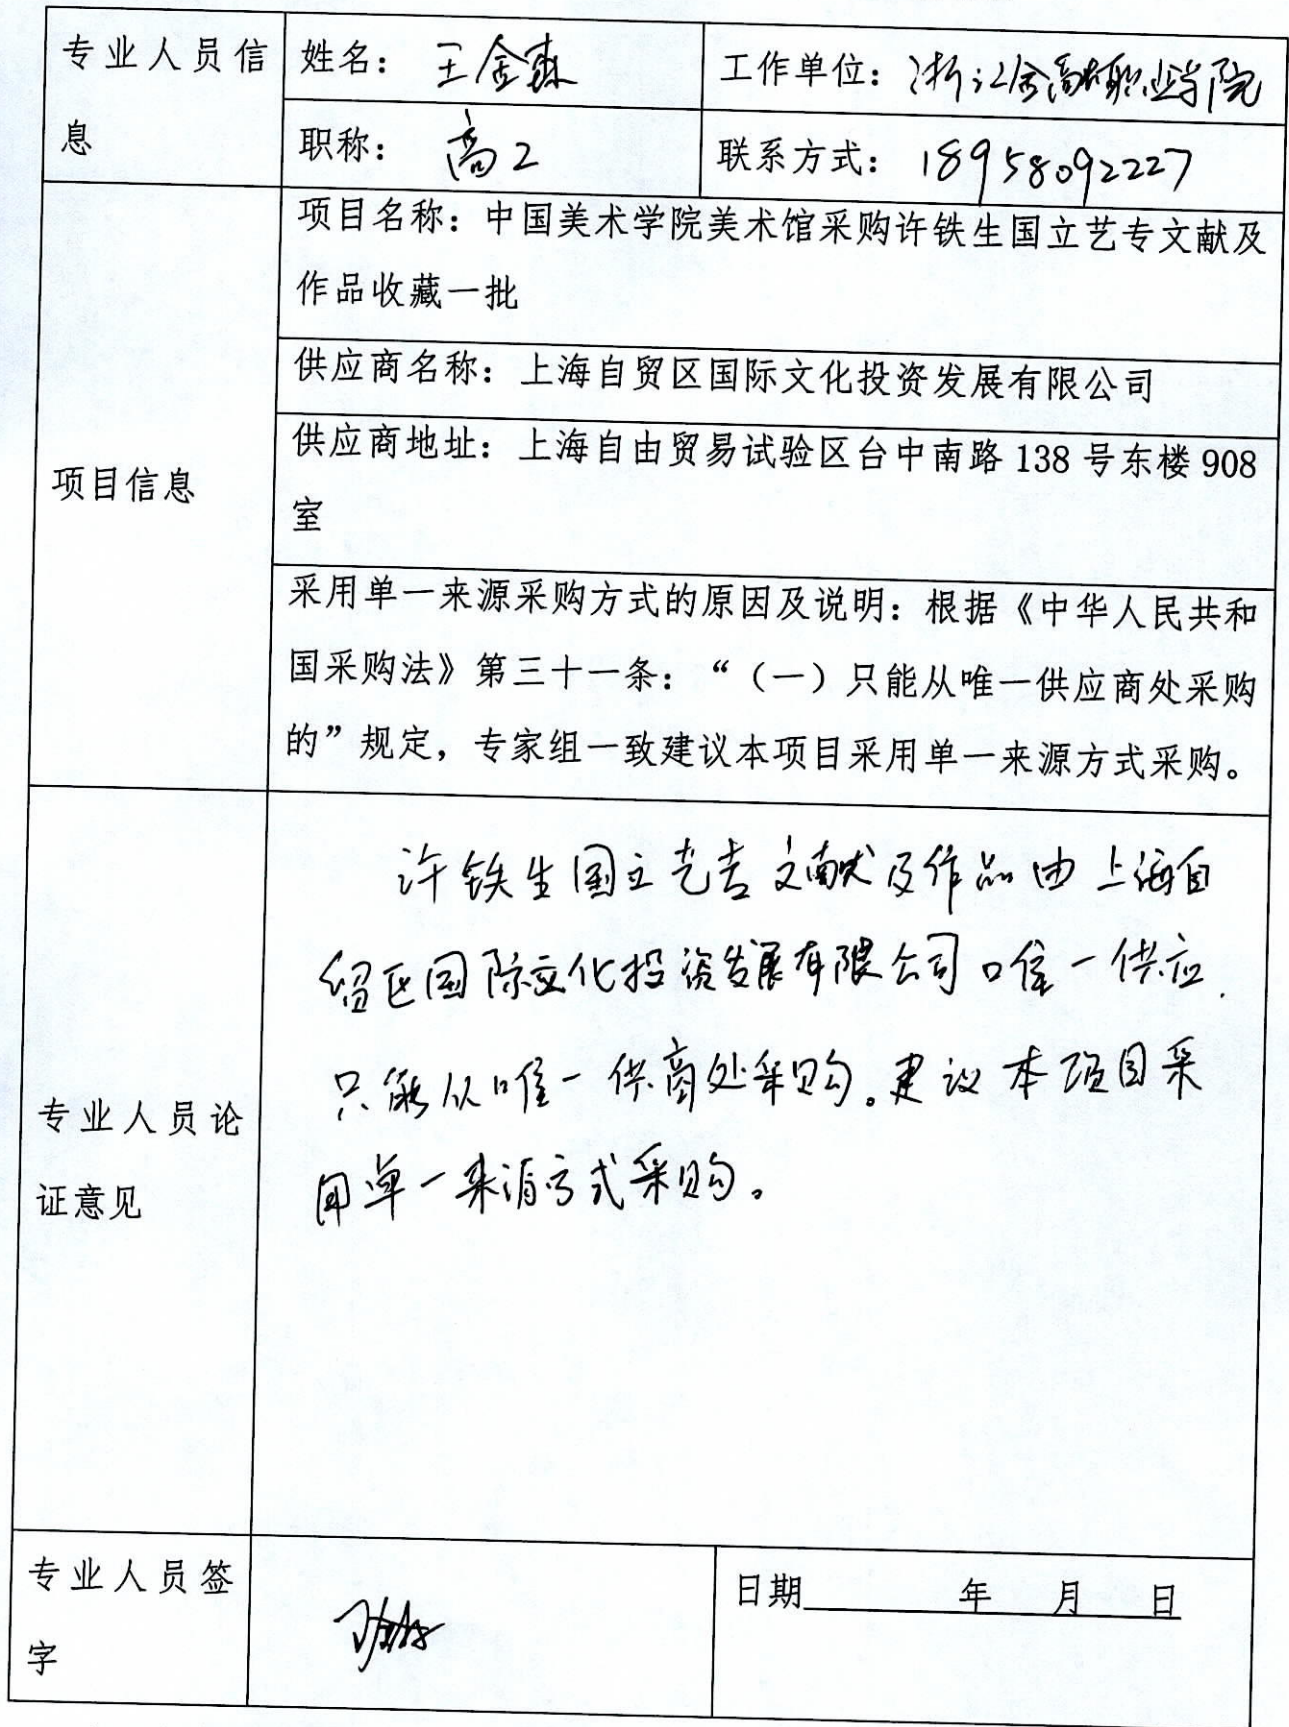 专业人员信息
姓名：王金森
工作单位：浙江金融职业学院
职称：高工
联系方式：18958092227
项目信息
项目名称：中国美术学院美术馆采购许铁生国立艺专文献及
作品收藏一批
供应商名称：上海自贸区国际文化投资发展有限公司
供应商地址：上海自由贸易试验区台中南路 138 号东楼 908
室
采用单一来源采购方式的原因及说明：根据《中华人民共和
国采购法》第三十一条：“（一）只能从唯一供应商处采购
的”规定，专家组一致建议本项目采用单一来源方式采购。
专业人员论
证意见
许铁生国立艺专文献及作品由上海自
贸区国际文化投资发展有限公司唯一供应.
只能从唯一供商处采购。建议本项目采
用单一来源方式采购。
专业人员签
字
日期 年 月 日